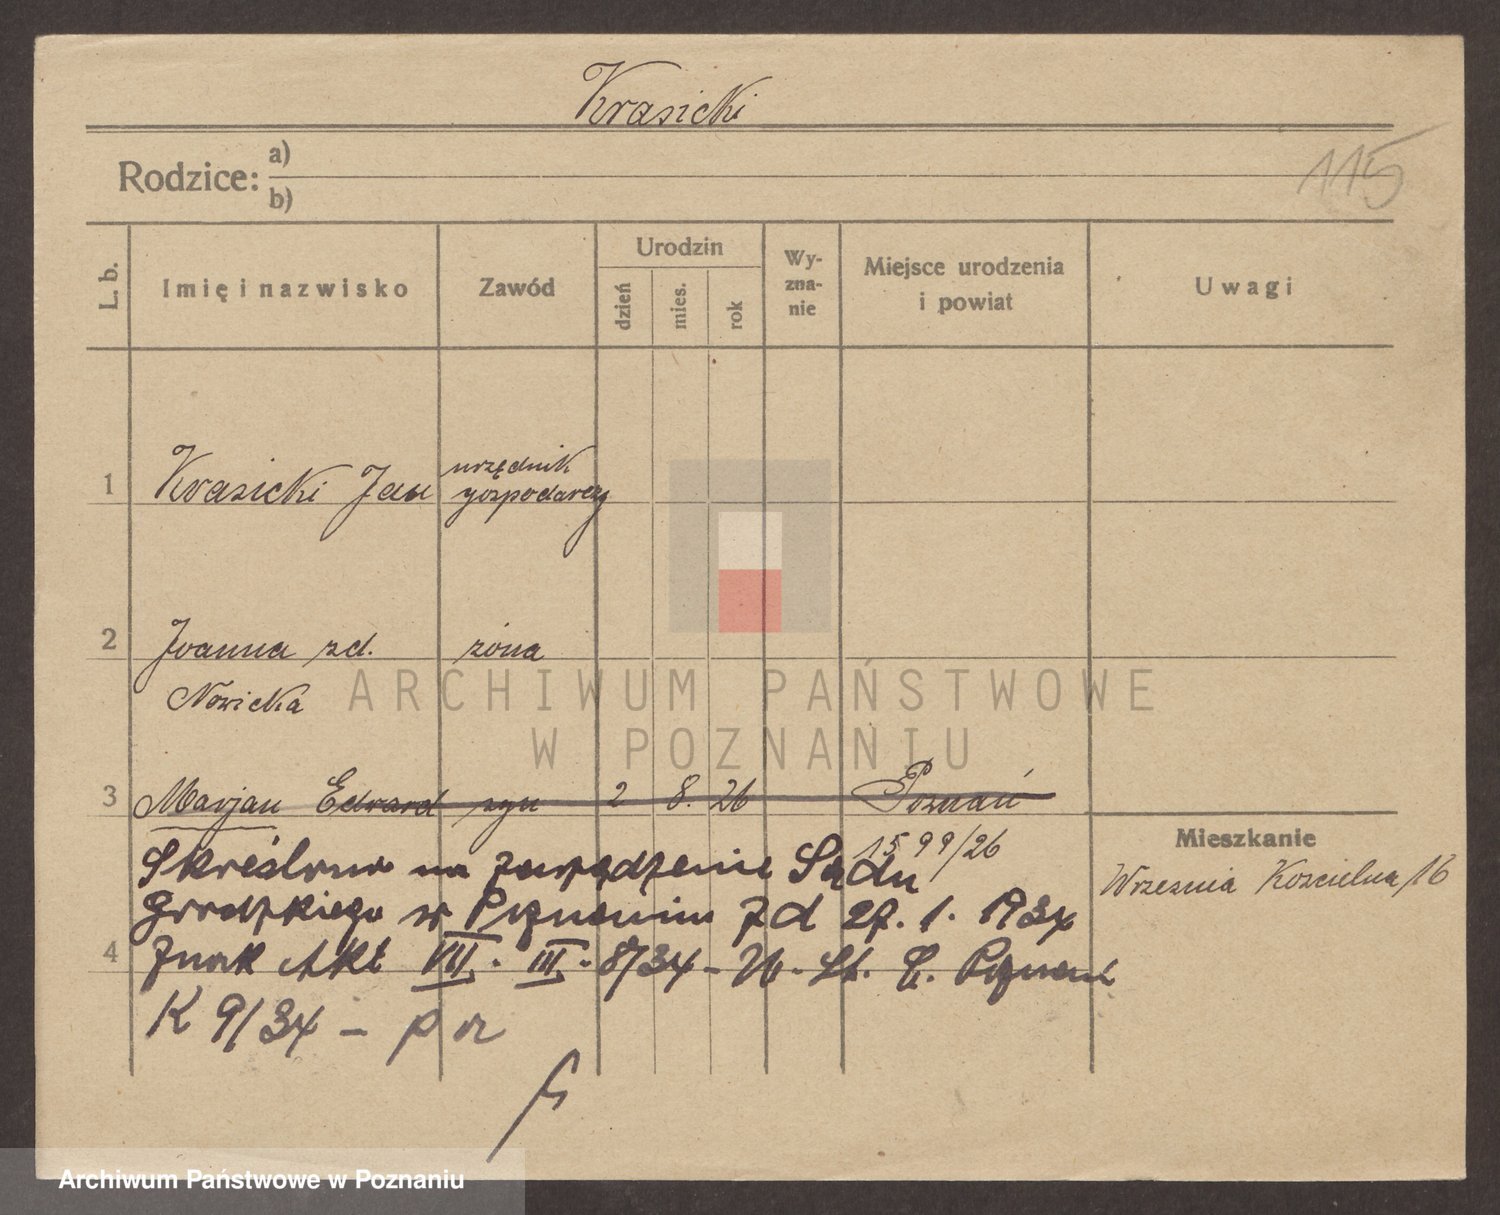 Krasicki
115
Rodzice: a)
b)
L. b.
Imię i nazwisko
Zawód
Urodzin
dzień
mies.
rok
Wy-
zna-
nie
Miejsce urodzenia
i powiat
Uwagi
1 Krasicki Jan urzędnik
gospodarczy
2 Joanna zd. żona
Nowicka
ARCHIWUM PAŃSTWOWE
W POZNANIU
3 Marjan Edward syn 2 8. 26 Poznań
1599/26
Mieszkanie
Wrzesnia Koscielna 16
Skreślono na zarządzenie Sądu
Grodzkiego w Poznaniu z d 29. 1. 1934
4 Znak Akt VII. III. 8/34 - Poznań
K 9/34 -
Archiwum Państwowe w Poznaniu